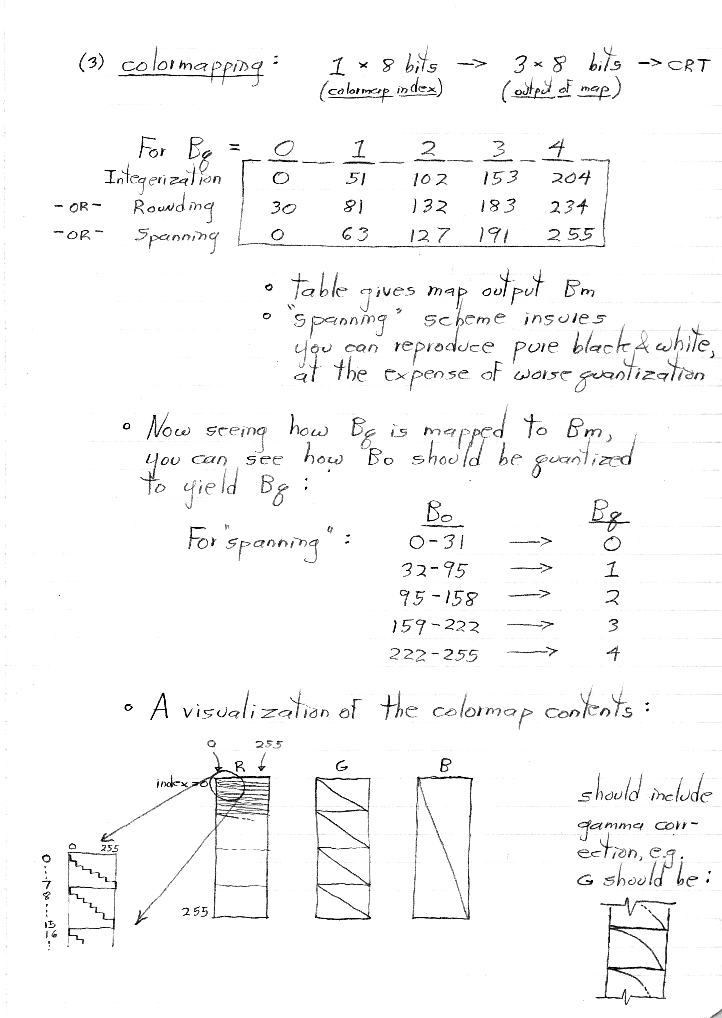 (3) colormapping : 1 × 8 bits → 3 × 8 bits → CRT
(colormap index) (output of map)
For Bq = 0 1 2 3 4
Integerization 0 51 102 153 204
-OR- Rounding 30 81 132 183 234
-OR- Spanning 0 63 127 191 255
• table gives map output Bm
• "spanning" scheme insures
you can reproduce pure black & white,
at the expense of worse quantization
• Now seeing how Bq is mapped to Bm,
you can see how Bo should be quantized
to yield Bq :
Bo Bq
For "spanning" : 0-31 → 0
32-95 → 1
95-158 → 2
159-222 → 3
222-255 → 4
• A visualization of the colormap contents :
0 255
R G B
index=0
255
should include
gamma corr-
ection, e.g.
G should be :
0 255
0
7
8
15
16